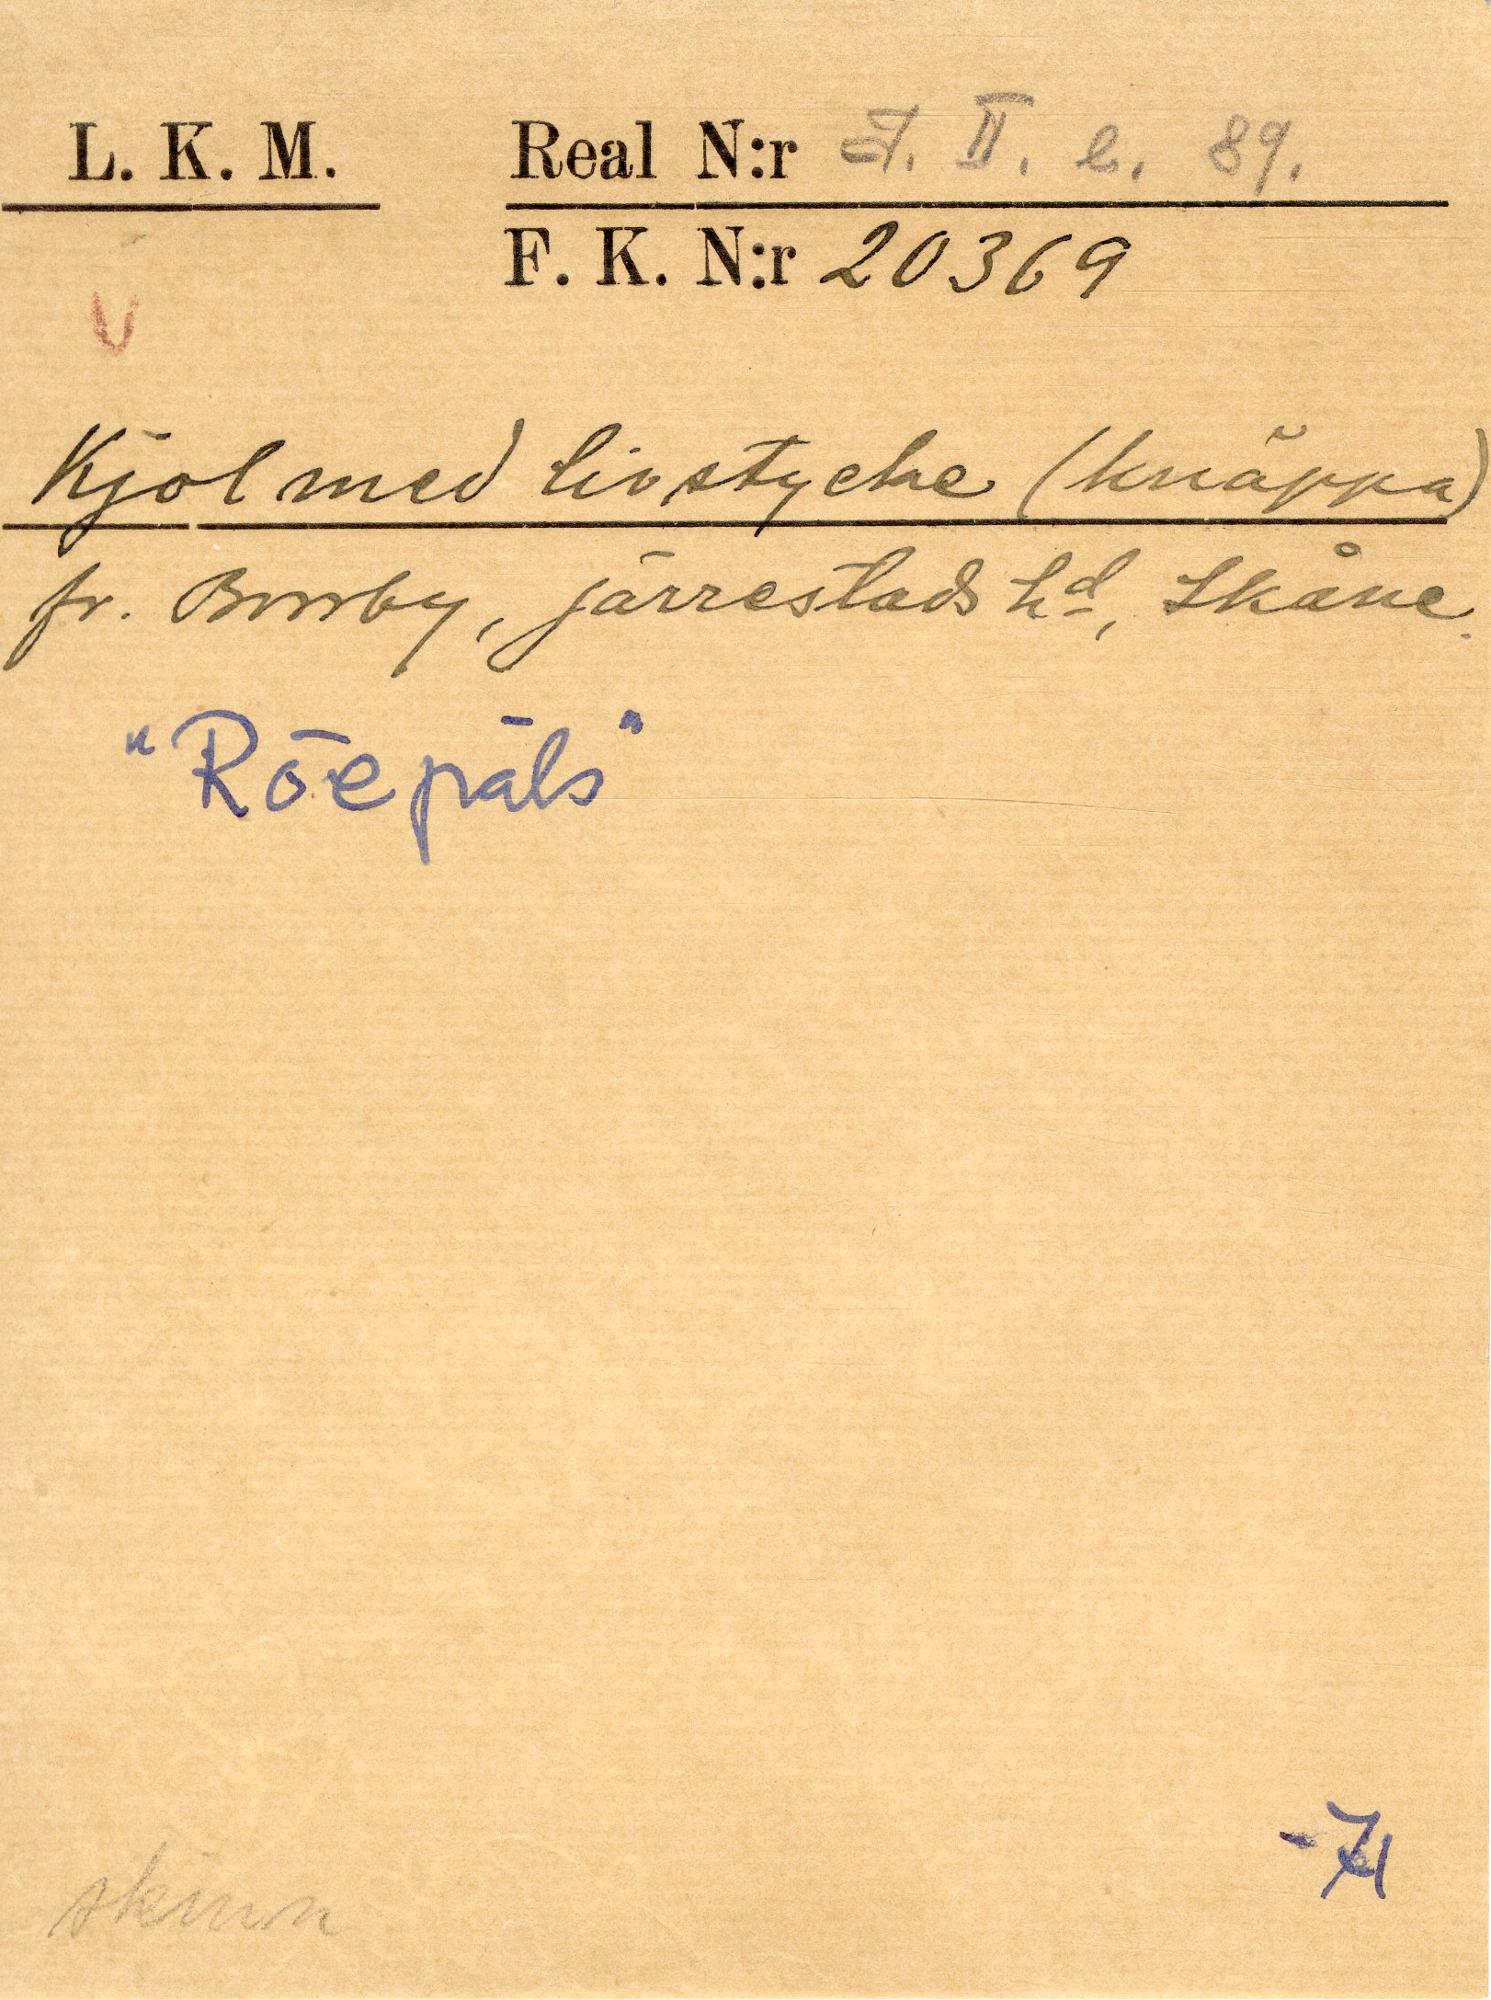 L. K. M.
Real N:r II. e. 89.
F. K. N:r 20369
V
Kjol med livstycke (knäppa)
fr. Borrby, Järrestads hd, Skåne.
"Röepäls"
-71
skinn